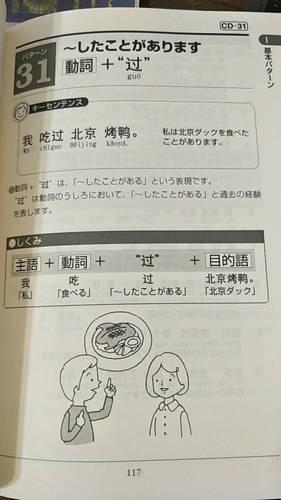 CD-31
1
基本パターン
パターン
31
～したことがあります
動詞 ＋“过”
guò
キーセンテンス
我 吃过 北京 烤鸭。
Wǒ chīguo Běijīng kǎoyā.
私は北京ダックを食べた
ことがあります。
●動詞＋“过”は、「～したことがある」という表現です。
“过”は動詞のうしろにおいて、「～したことがある」と過去の経験
を表します。
●しくみ
主語 ＋ 動詞 ＋ “过” ＋ 目的語
我 吃 过 北京烤鸭。
「私」 「食べる」 「～したことがある」 「北京ダック」
117